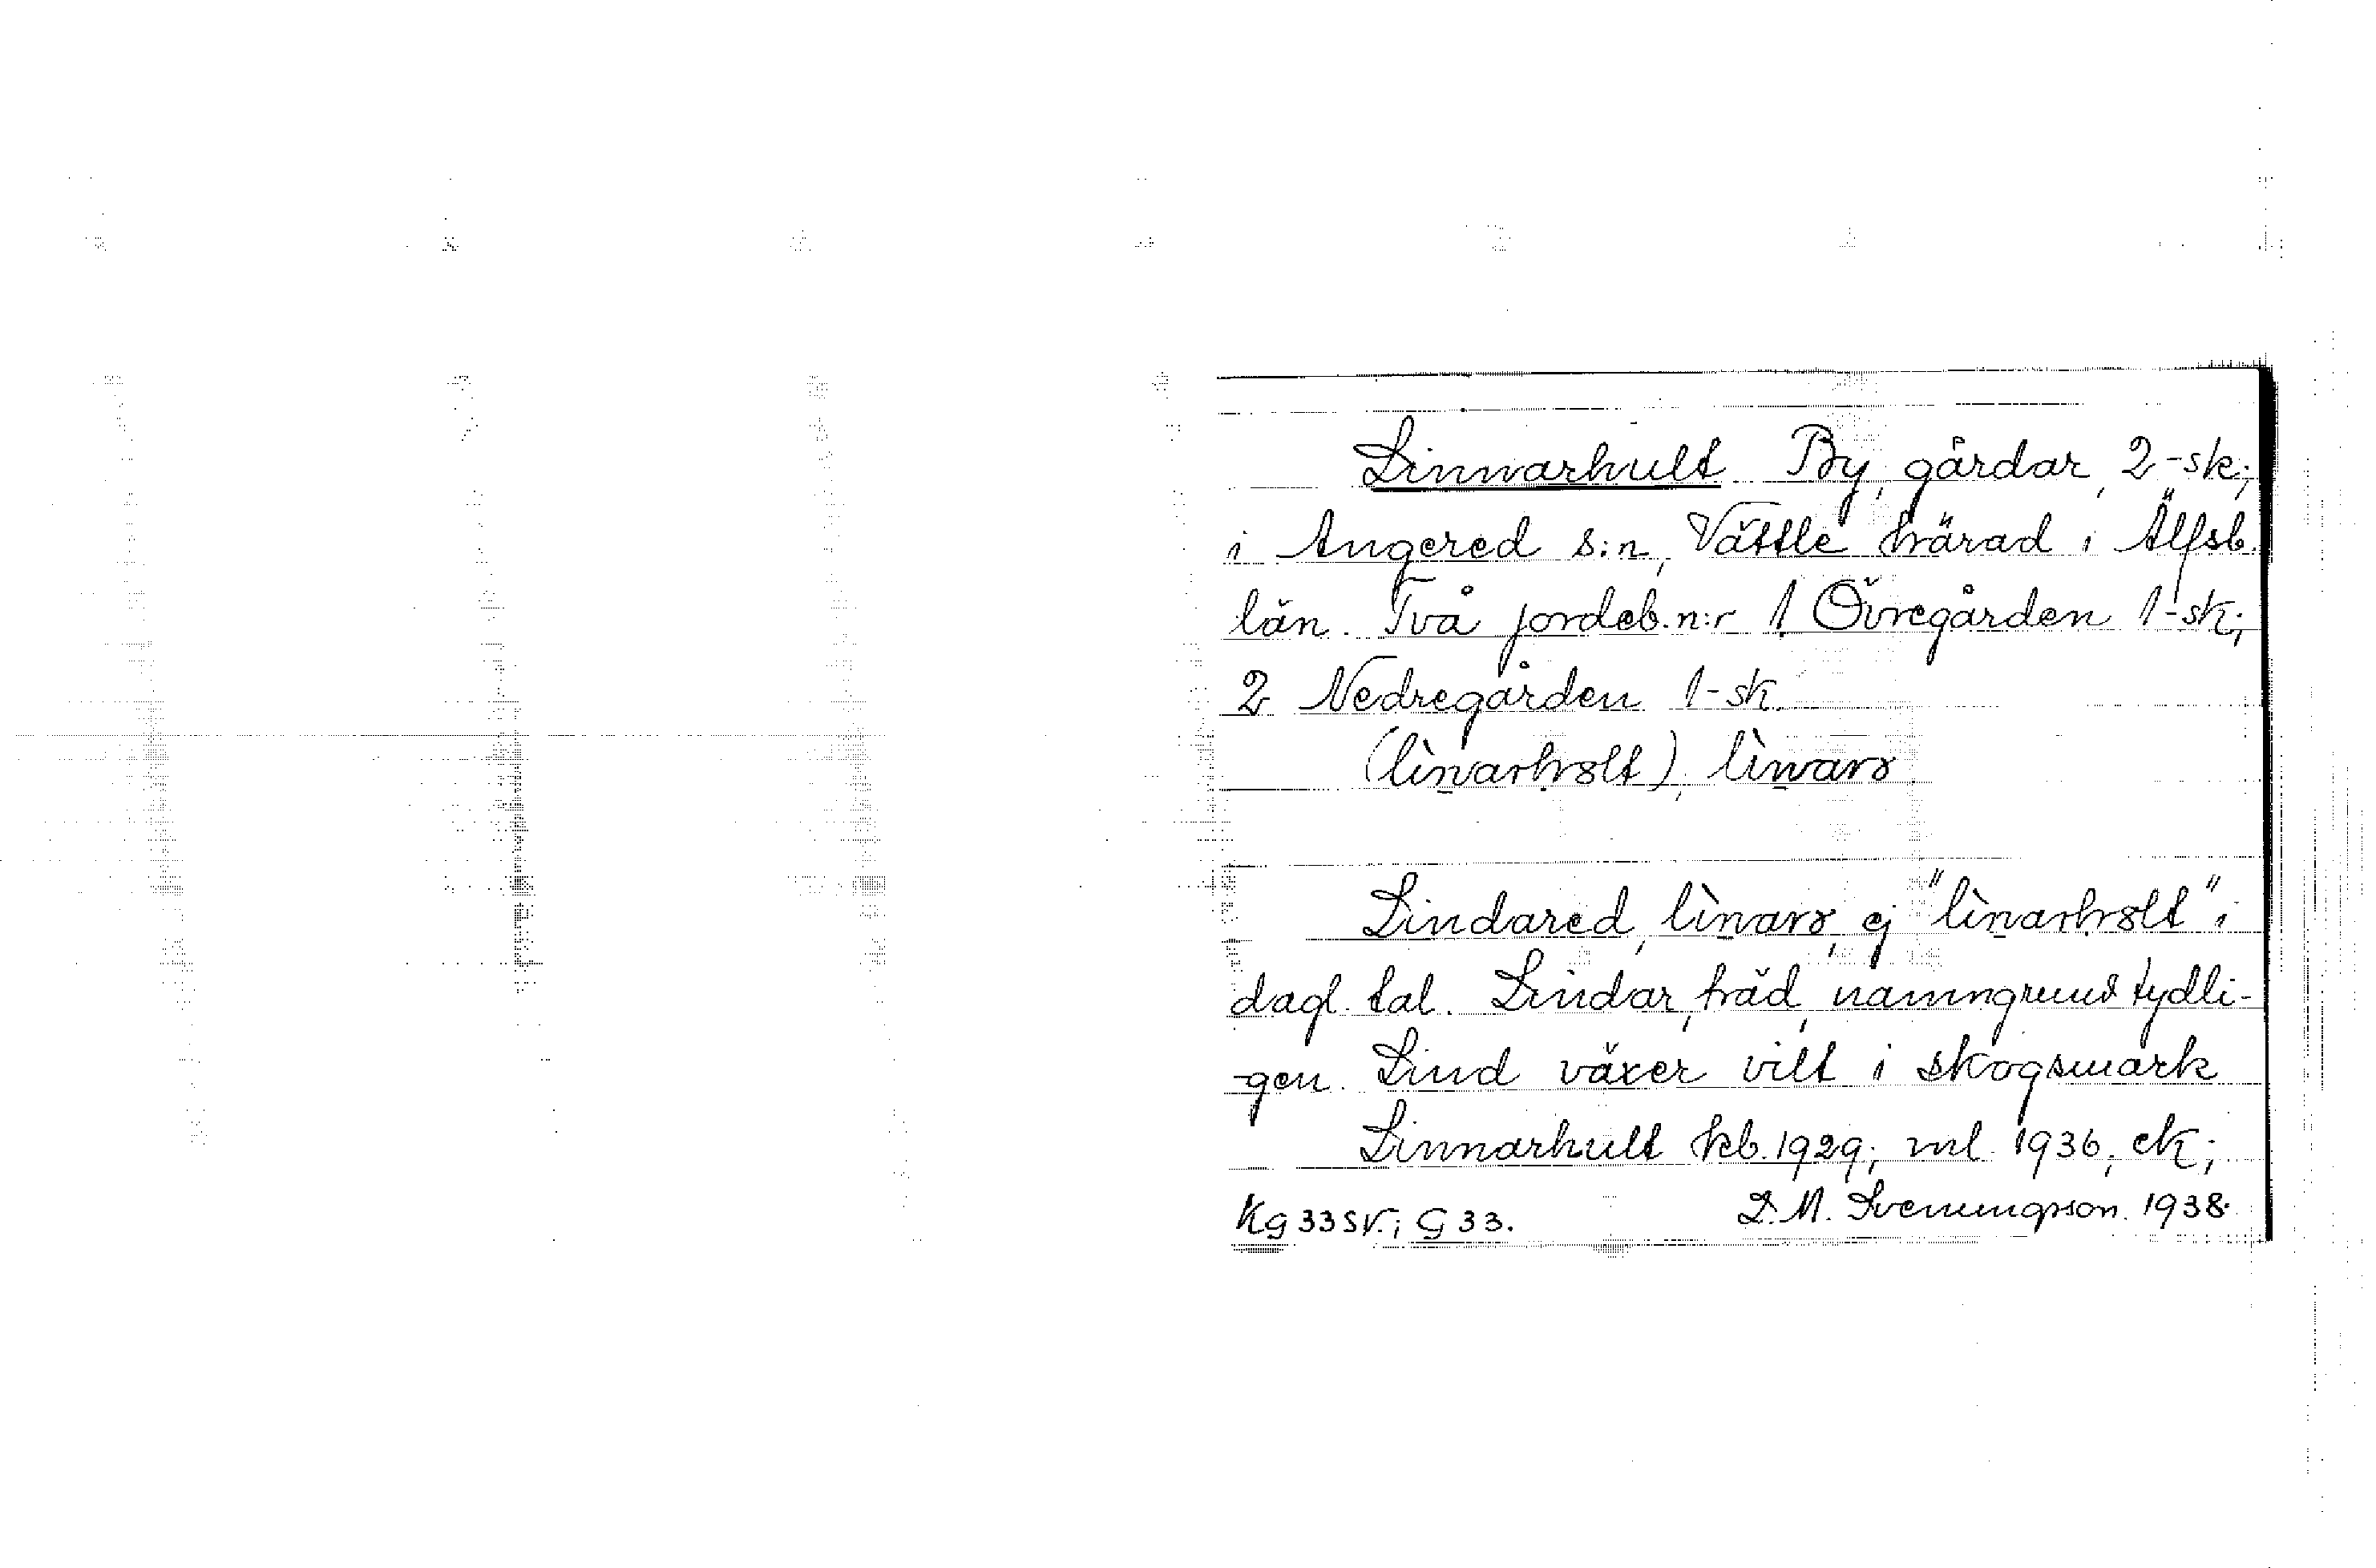 Linnarhult By, gårdar, 2-sk;
i Angered s:n, Vättle härad i Älfsb.
län. Två jordeb.n:r 1 Övregården 1-sk;
2 Nedregården 1-sk.
(lìnarholt), lìnarə
Lindared, lìnarə, ej "lìnarholt" i
dagl. tal. Lindar, träd, namngrund tydli-
-gen. Lind växer vilt i skogsmark
Linnarhult kb. 1929; ml. 1936, ek;
Kg 33 SV.; G 33. D. M. Svenungsson. 1938.